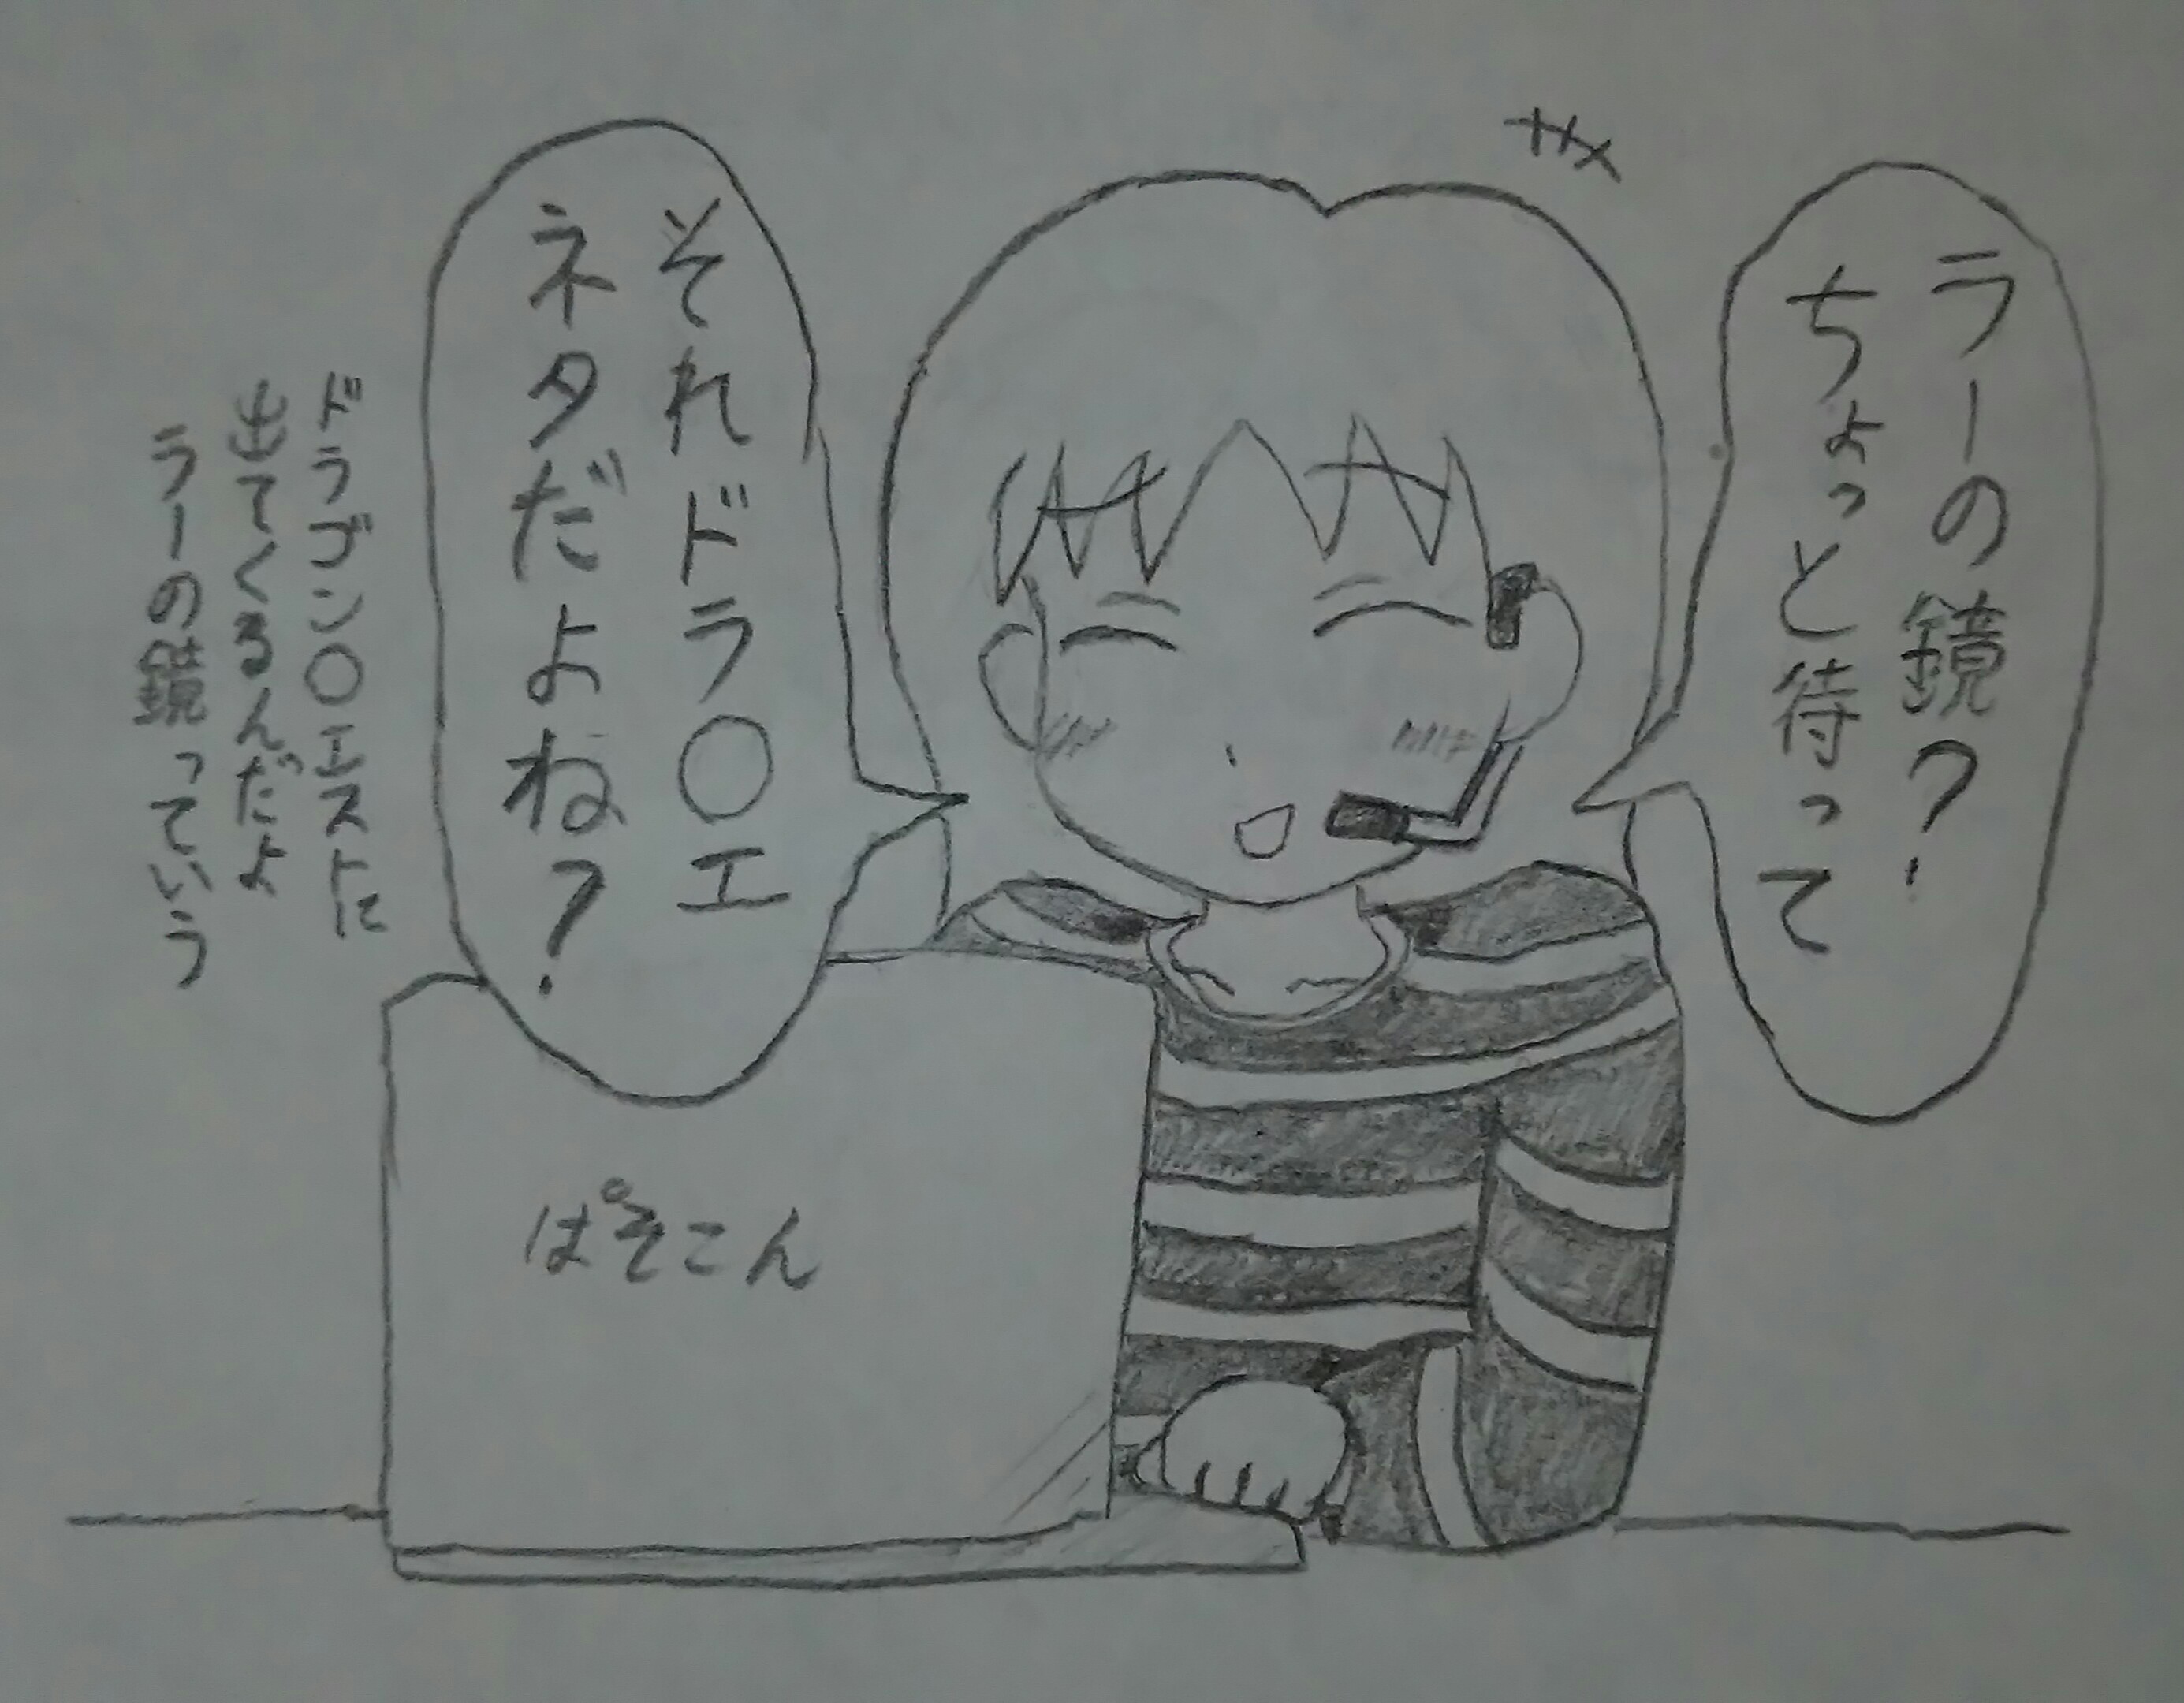 ラーの鏡？
ちょっと待って
それドラ〇エ
ネタだよね？
ドラゴン〇エストに
出てくるんだよ
ラーの鏡っていう
ぱそこん